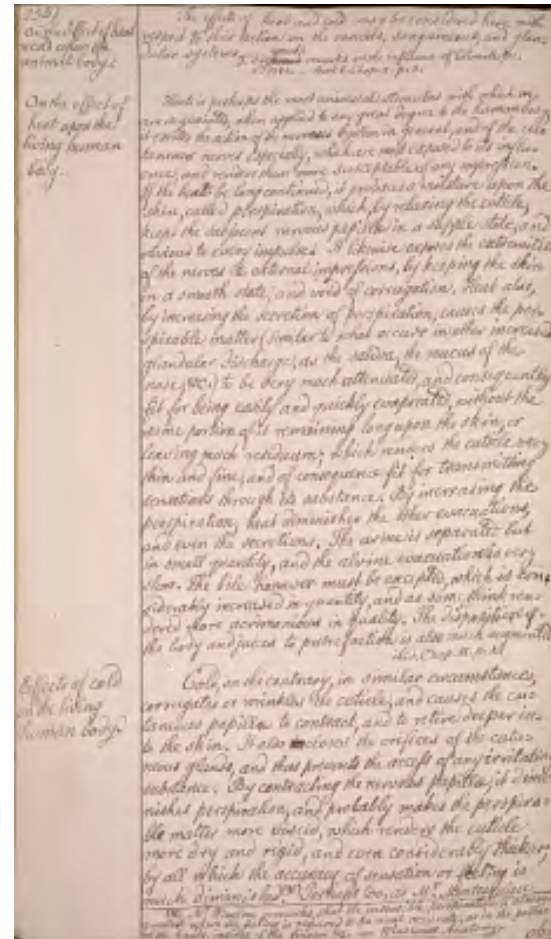 On the effect of heat
and cold upon the
animal body.
The effects of heat and cold may be considered here, with
respect to their action on the nervous, sanguineous, and glan-
dular systems.
remarks on the influence of Climate, &c.
On the effect of
heat upon the
living human
body.
Heat is perhaps the most universal stimulus with which we
are acquainted, when applied to any great degree to the human body,
it excites the action of the nervous system in general, and of the cuta-
neous nerves especially, which are most exposed to its influ-
ence, and renders them more susceptible of any impression.
If the heat be long continued, it produces a moisture upon the
skin, called perspiration, which, by relaxing the cuticle,
keeps the subjacent nervous papillæ in a supple state, and
obvious to every impulse. It likewise exposes the extremities
of the nerves to external impressions, by keeping the skin
in a smooth state, and void of corrugation. Heat also,
by increasing the secretion of perspiration, causes the per-
spirable matter (similar to what occurs in other increased
glandular discharges, as the saliva, the mucus of the
nose, &c.) to be very much attenuated, and consequently
fit for being easily and quickly evaporated, without the
same portion of it remaining long upon the skin, or
leaving much residuum; which renders the cuticle very
thin and fine, and of consequence fit for transmitting
sensations through its substance. By increasing the
perspiration, heat diminishes the other evacuations,
and even the secretions. The urine is separated but
in small quantity, and the alvine evacuation is very
slow. The bile however must be excepted, which is con-
siderably increased in quantity, and as some think ren-
dered more acrimonious in quality. The disposition of
the body and juices to putrefaction is also much augmented.
Effects of cold
on the living
human body.
Cold, on the contrary, in similar circumstances,
corrugates or wrinkles the cuticle, and causes the cu-
taneous papillæ to contract, and to retire deeper in-
to the skin. It also closes the orifices of the cuta-
neous glands, and thus prevents the access of any irritating
substance. By contracting the nervous papillæ, it dimi-
nishes perspiration, and probably makes the perspira-
ble matter more viscid, which renders the cuticle
more dry and rigid, and even considerably thicker;
by all which the accuracy of sensation or feeling is
much diminished. Perhaps too, as Mr.
remarks, that the